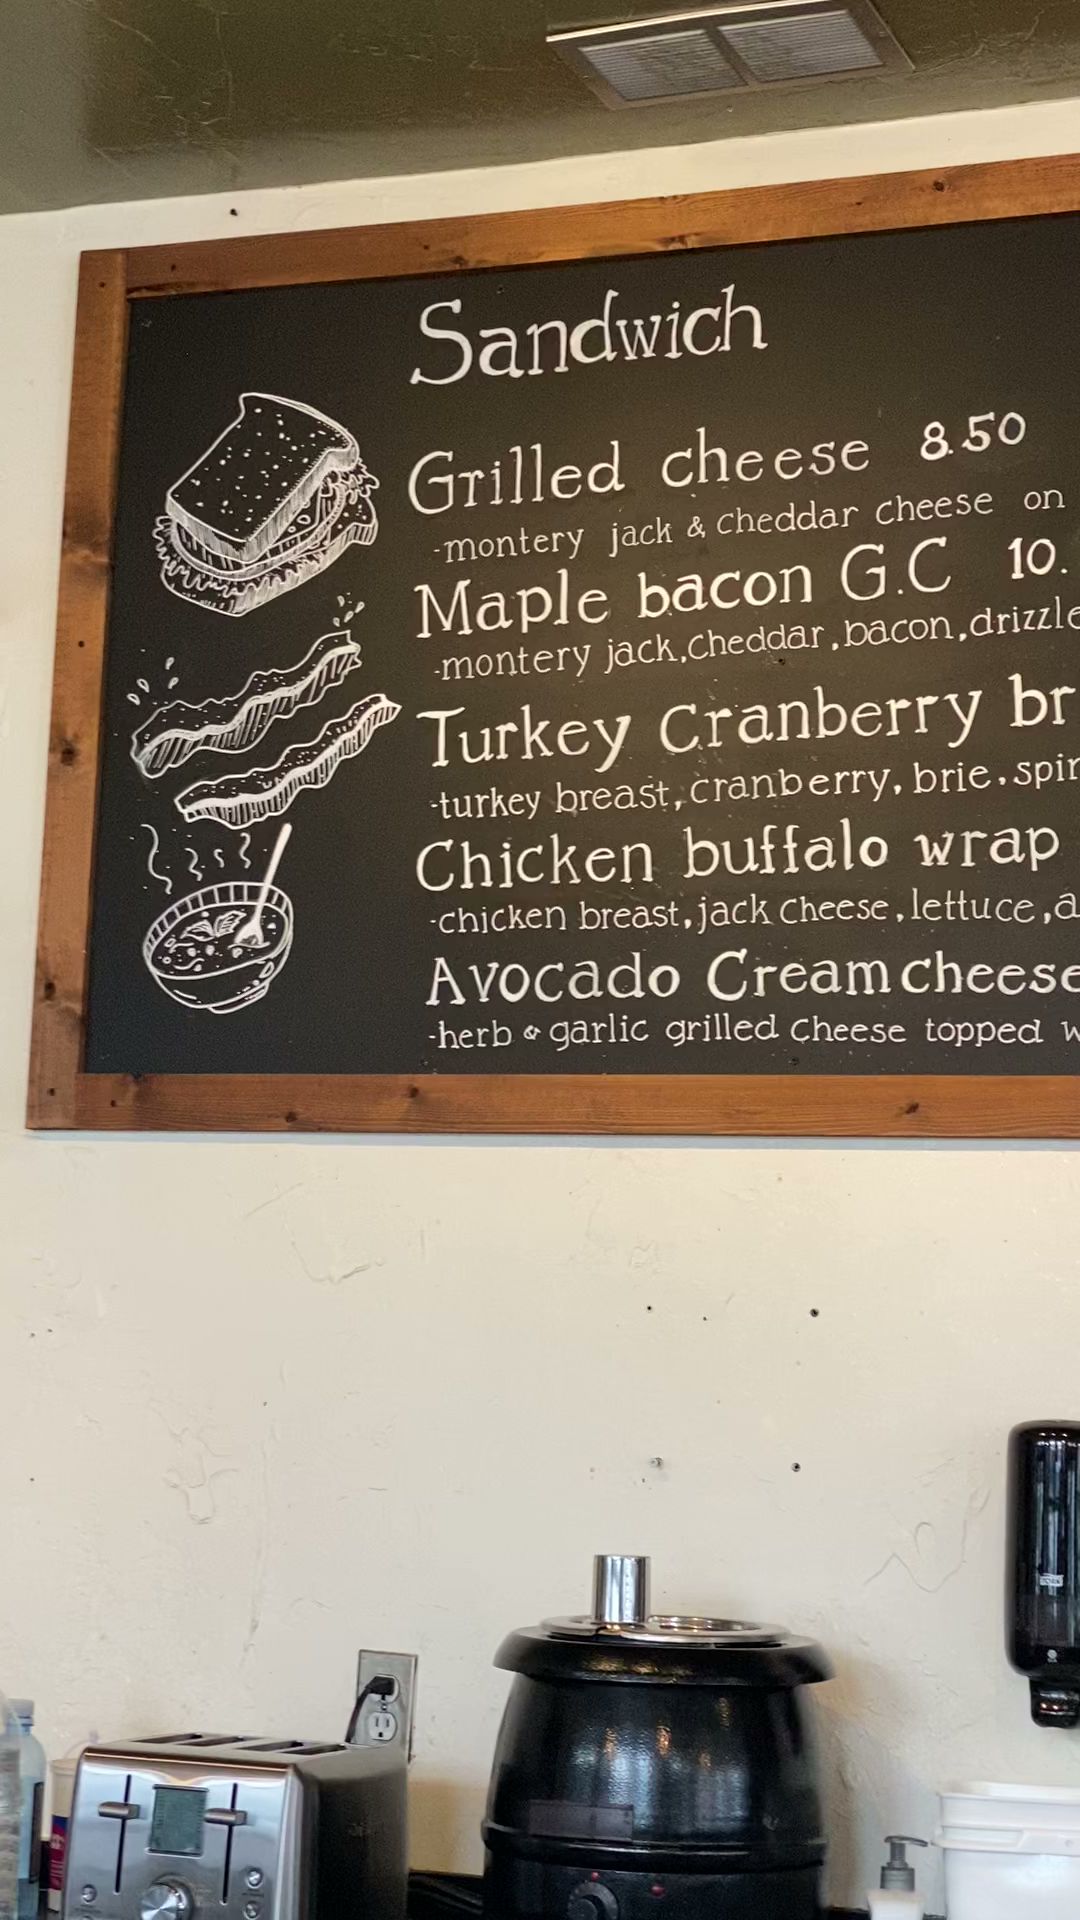 Sandwich
Grilled cheese 8.50
-montery jack & cheddar cheese on
Maple bacon G.C 10.
-montery jack, cheddar, bacon, drizzle
Turkey Cranberry br
-turkey breast, cranberry, brie, spin
Chicken buffalo wrap
-chicken breast, jack cheese, lettuce, a
Avocado Cream cheese
-herb & garlic grilled cheese topped w